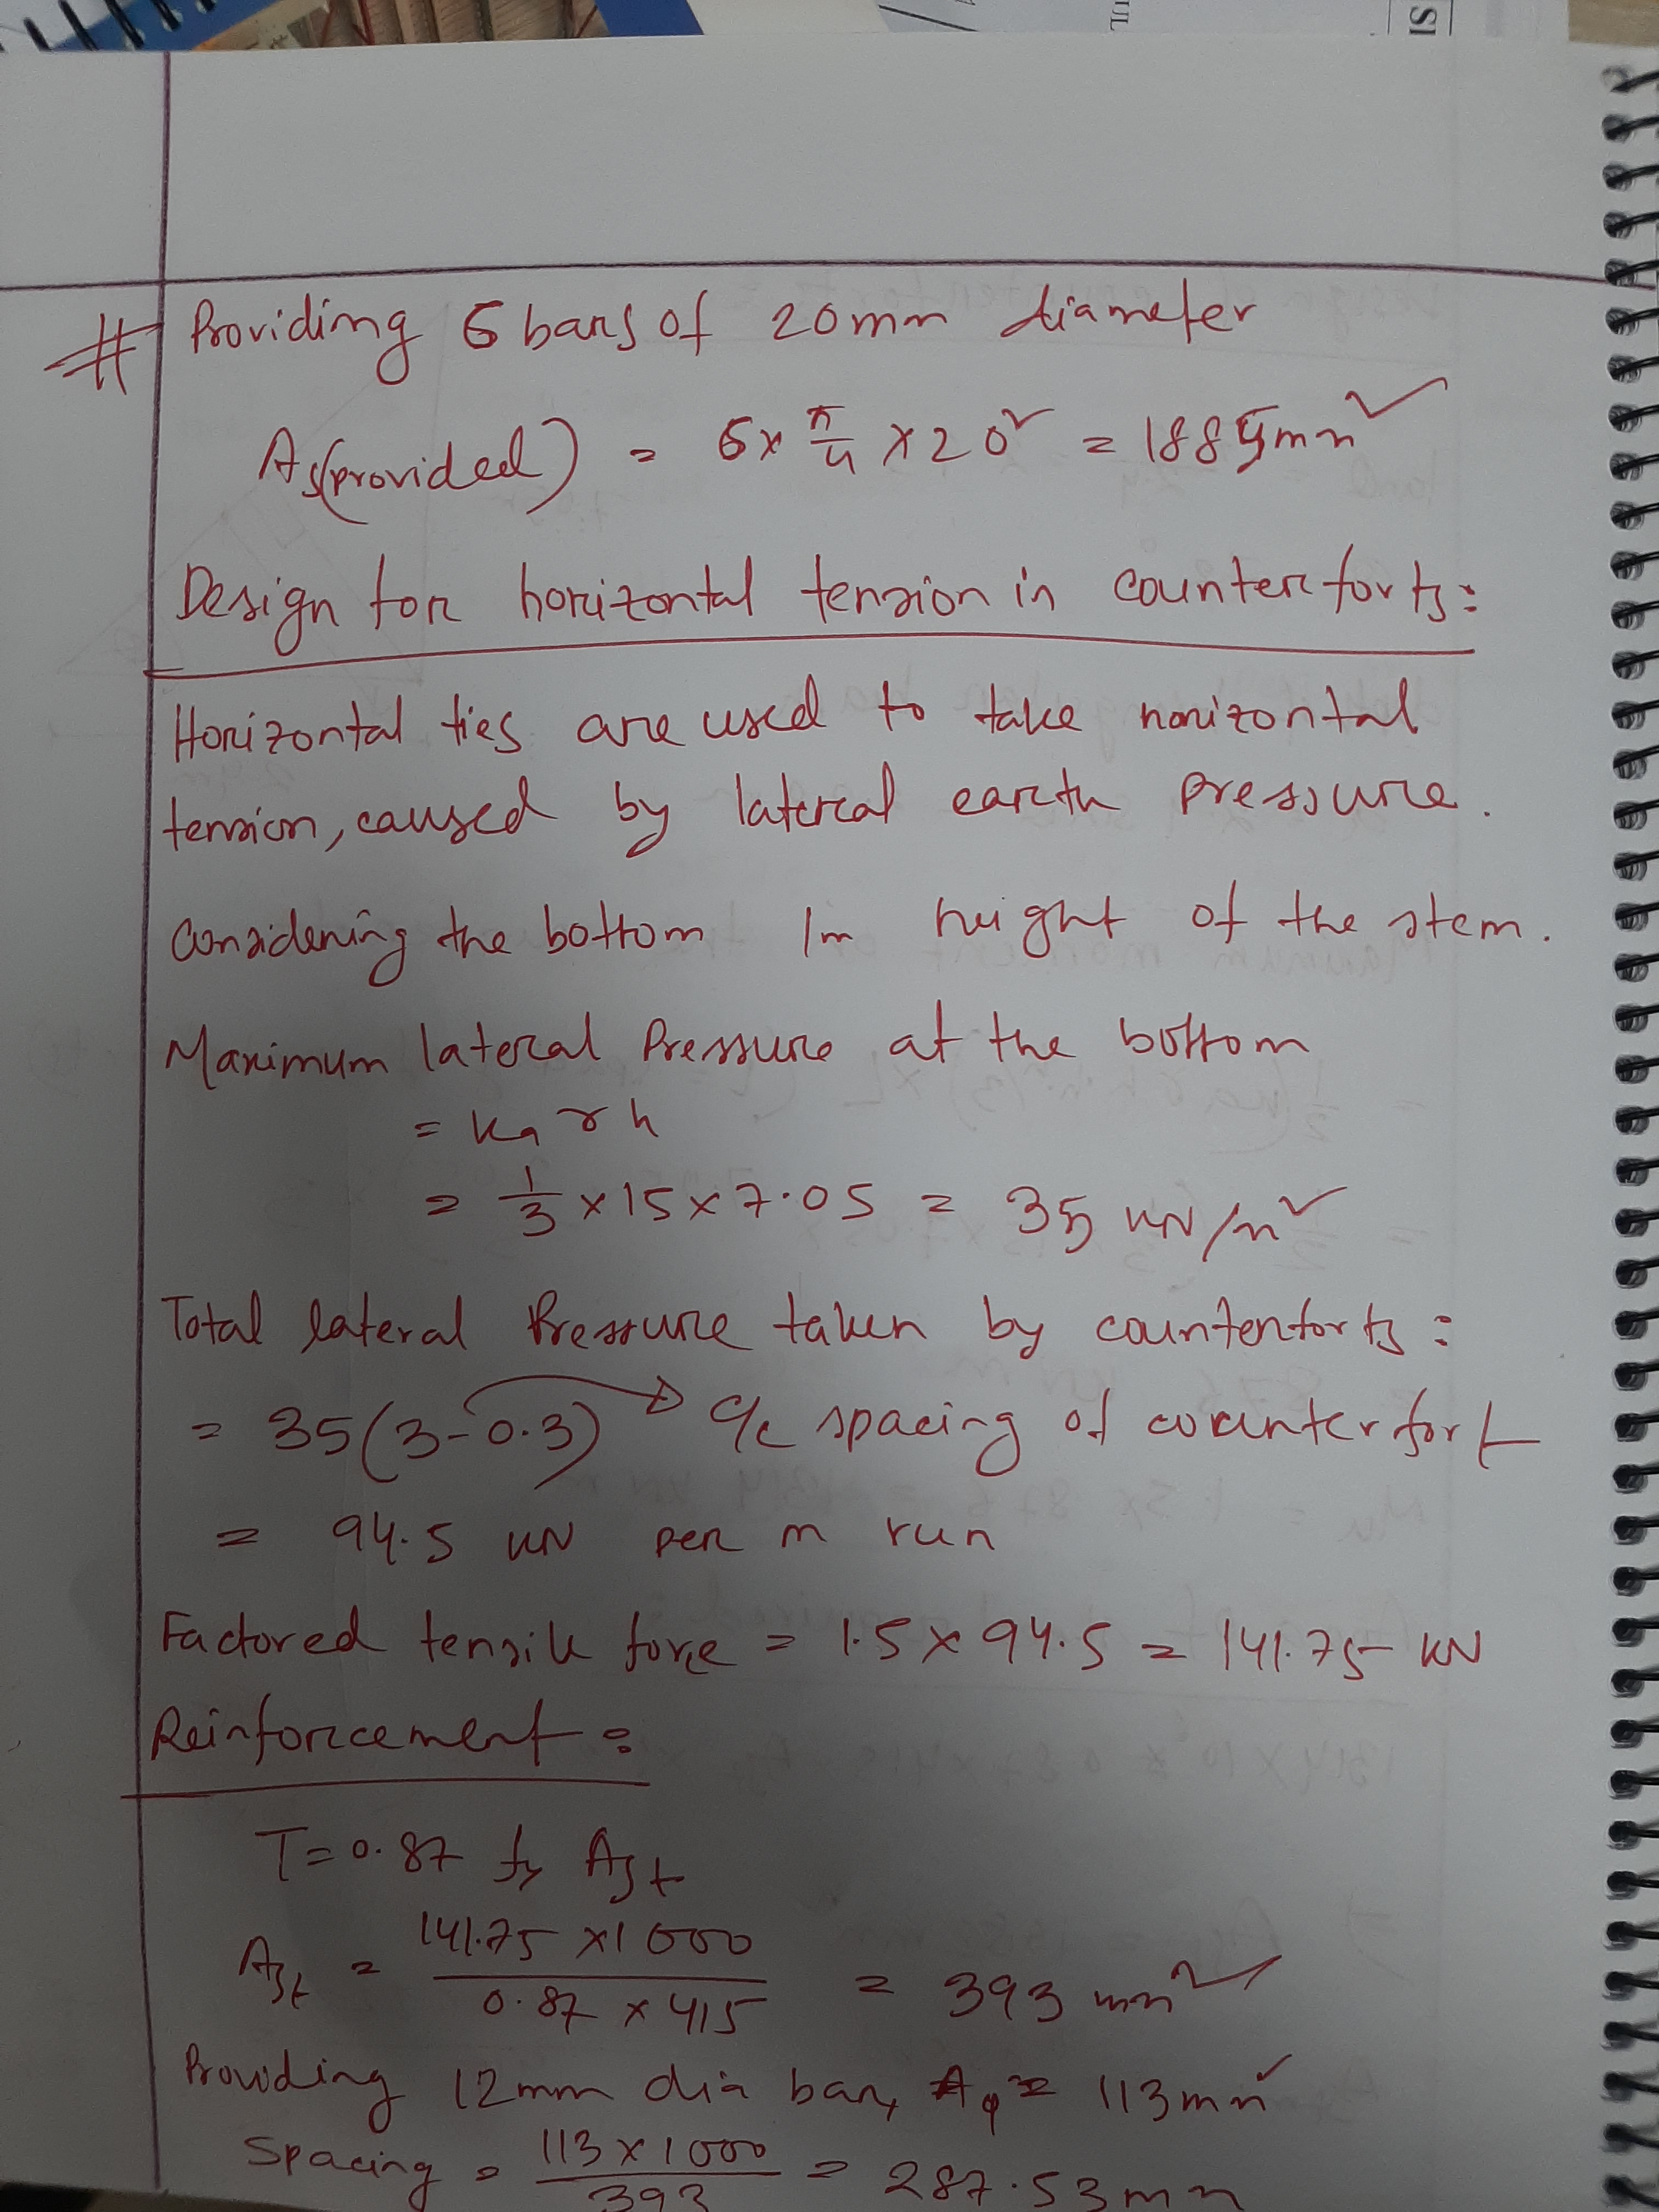 UL
SI
# Providing 6 bars of 20mm diameter
As(provided) = 6 × π/4 × 20² = 1885mm²
Design for horizontal tension in counterforts:
Horizontal ties are used to take horizontal
tension, caused by lateral earth pressure.
Considering the bottom 1m height of the stem.
Maximum lateral Pressure at the bottom
= Ka γ h
= 1/3 × 15 × 7.05 = 35 kN/m²
Total lateral Pressure taken by counterforts:
= 35(3-0.3) → c/c spacing of counterfort
= 94.5 kN per m run
Factored tensile force = 1.5 × 94.5 = 141.75 kN
Reinforcement:
T = 0.87 fy Ast
Ast = 141.75 × 1000 / 0.87 × 415 = 393 mm²
Providing 12mm dia bar, Aφ = 113mm²
Spacing = 113 × 1000 / 393 = 287.53mm